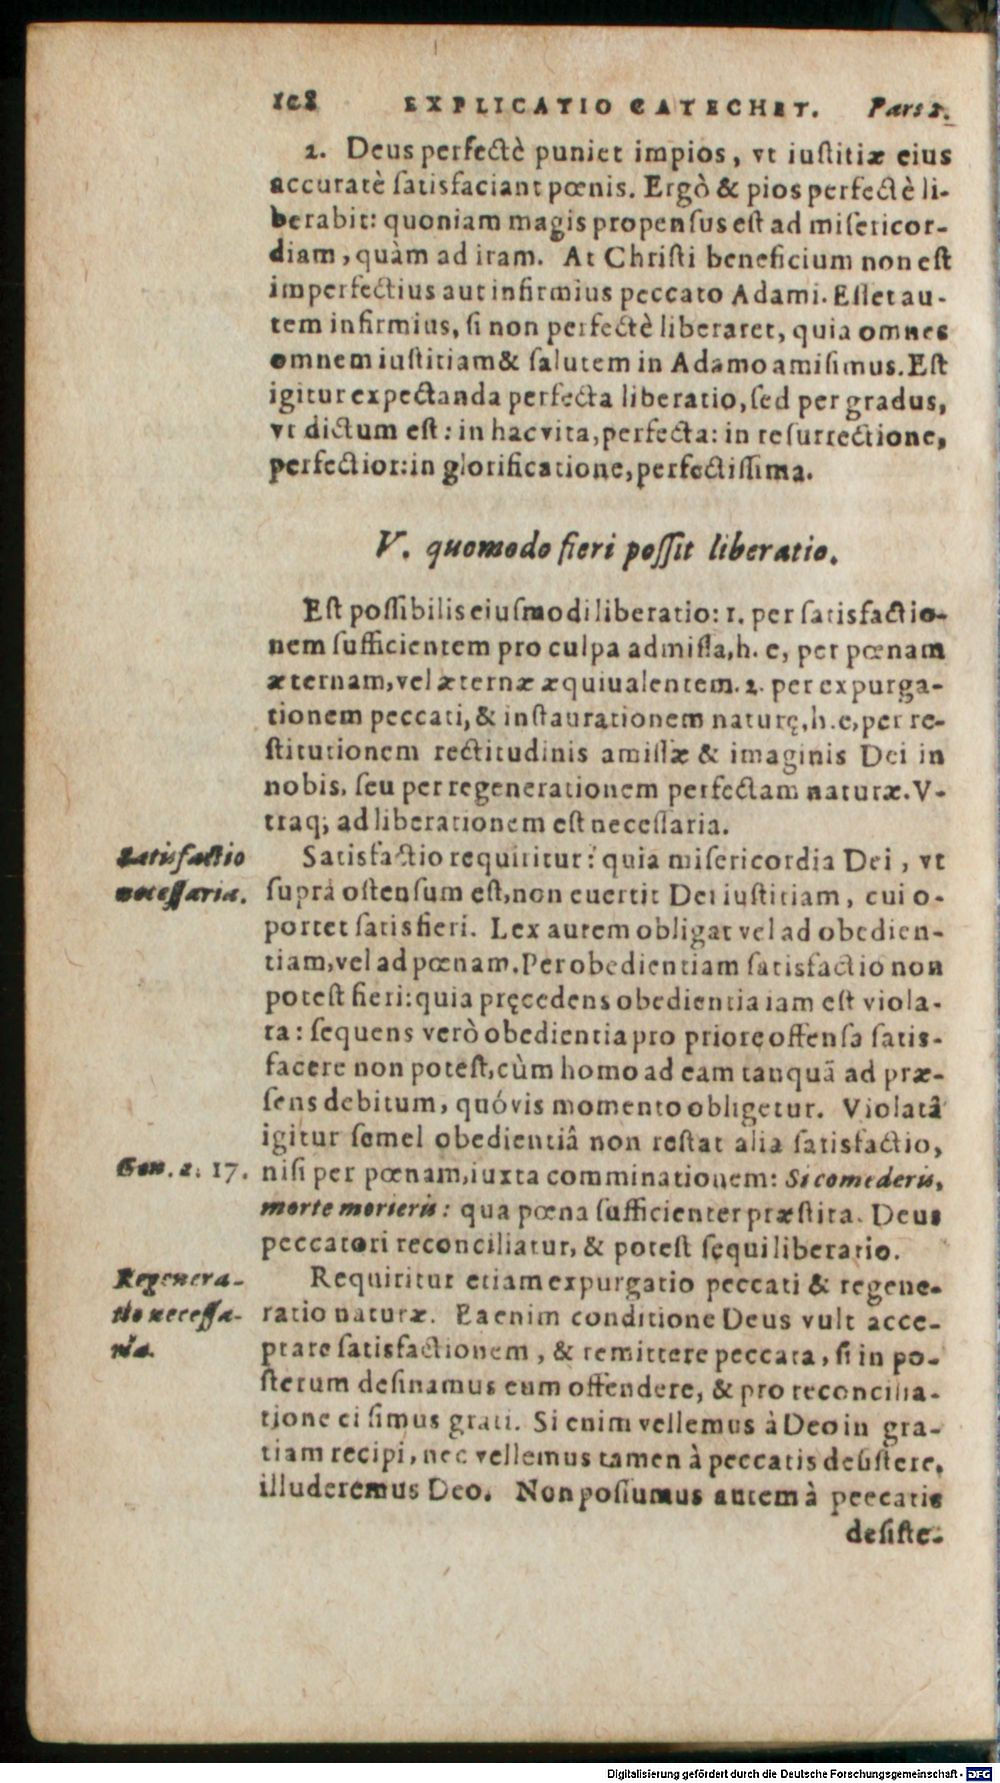 108 EXPLICATIO CATECHET. Pars 1.
2. Deus perfectè puniet impios, vt iustitiæ eius
accuratè satisfaciant pœnis. Ergò & pios perfectè li-
berabit: quoniam magis propensus est ad misericor-
diam, quàm ad iram. At Christi beneficium non est
imperfectius aut infirmius peccato Adami. Esset au-
tem infirmius, si non perfectè liberaret, quia omnes
omnem iustitiam & salutem in Adamo amisimus. Est
igitur expectanda perfecta liberatio, sed per gradus,
vt dictum est: in hac vita, perfecta: in resurrectione,
perfectior: in glorificatione, perfectissima.
V. quomodo fieri possit liberatio.
Est possibilis eiusmodi liberatio: 1. per satisfactio-
nem sufficientem pro culpa admissa, h. e, per pœnam
æternam, vel æternæ æquiualentem. 2. per expurga-
tionem peccati, & instaurationem naturę, h. e, per re-
stitutionem rectitudinis amissæ & imaginis Dei in
nobis, seu per regenerationem perfectam naturæ. V-
traq; ad liberationem est necessaria.
Satisfactio
necessaria.
Satisfactio requiritur: quia misericordia Dei, vt
suprà ostensum est, non euertit Dei iustitiam, cui o-
portet satisfieri. Lex autem obligat vel ad obedien-
tiam, vel ad pœnam. Per obedientiam satisfactio non
potest fieri: quia pręcedens obedientia iam est viola-
ta: sequens verò obedientia pro priore offensa satis-
facere non potest, cùm homo ad eam tanquã ad præ-
sens debitum, quóvis momento obligetur. Violatâ
igitur semel obedientiâ non restat alia satisfactio,
Gen. 2. 17.
nisi per pœnam, iuxta comminationem: Si comederis,
morte morieris: qua pœna sufficienter præstita. Deus
peccatori reconciliatur, & potest sequi liberatio.
Regenera-
tio necessa-
ria.
Requiritur etiam expurgatio peccati & regene-
ratio naturæ. Ea enim conditione Deus vult acce-
ptare satisfactionem, & remittere peccata, si in po-
sterum desinamus eum offendere, & pro reconcilia-
tione ei simus grati. Si enim vellemus à Deo in gra-
tiam recipi, nec vellemus tamen à peccatis desistere,
illuderemus Deo. Non possumus autem à peccatis
desiste-
Digitalisierung gefördert durch die Deutsche Forschungsgemeinschaft - DFG